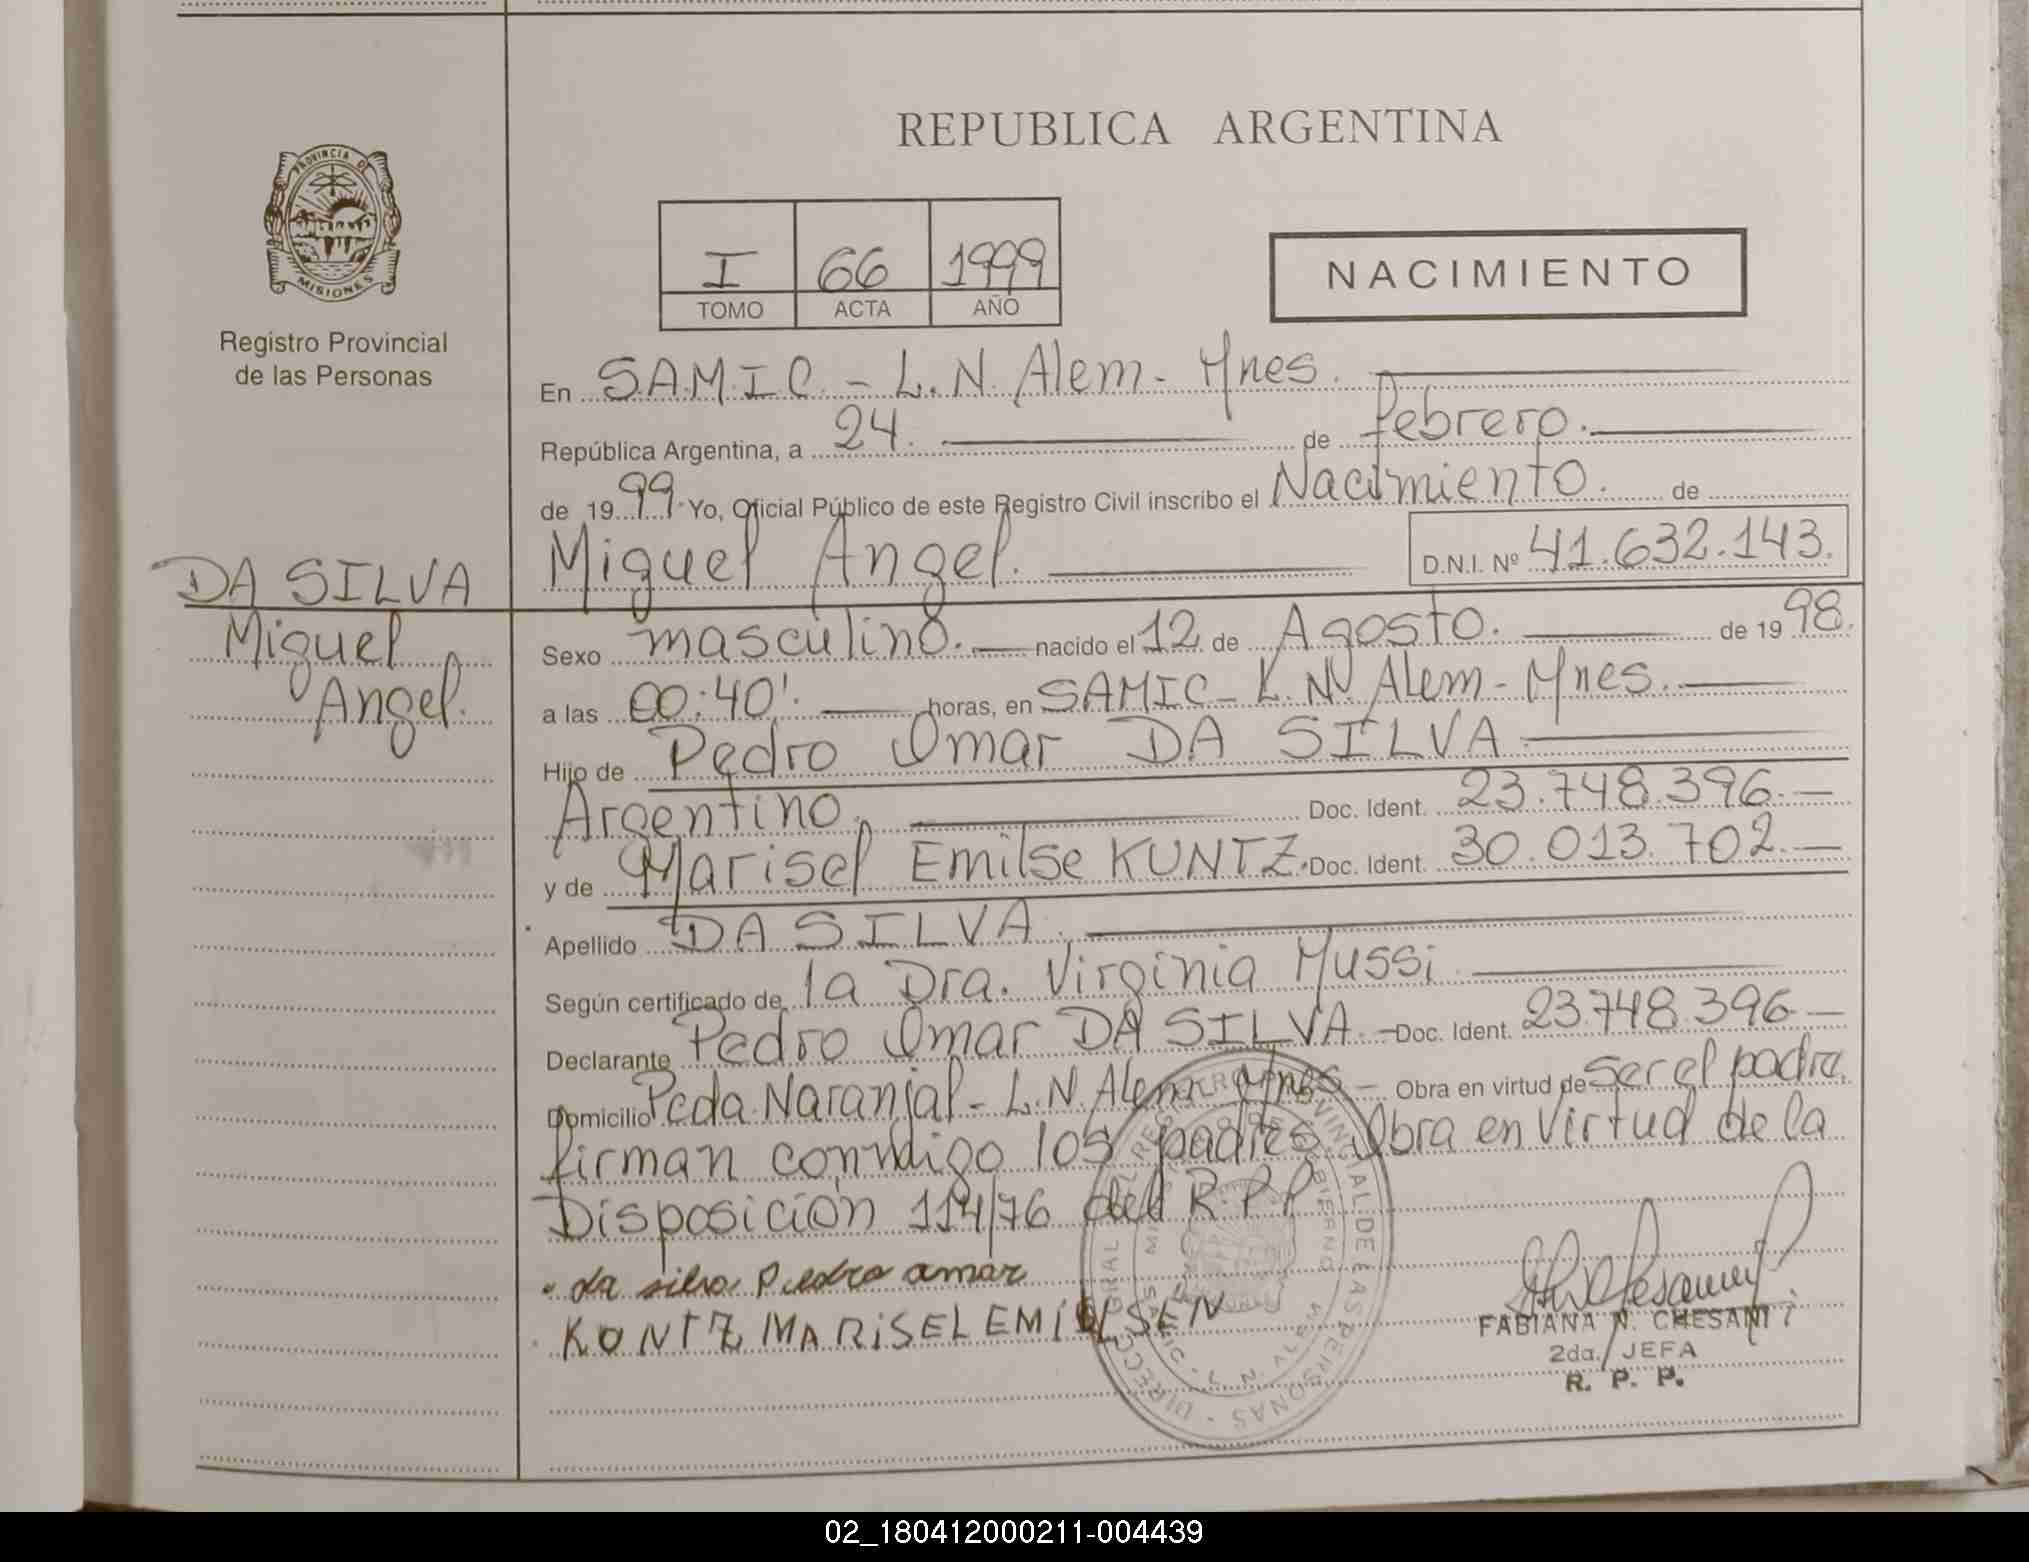 REPUBLICA ARGENTINA
PROVINCIA DE MISIONES
Registro Provincial
de las Personas
I 66 1999
TOMO ACTA AÑO
NACIMIENTO
En S.A.M.I.C. - L.N. Alem - Mnes.
República Argentina, a 24. de febrero.
de 1999. Yo, Oficial Público de este Registro Civil inscribo el Nacimiento. de
Miguel Angel. D.N.I. Nº 41.632.143.
DA SILVA
Miguel
Angel.
Sexo masculino. nacido el 12 de Agosto. de 1998.
a las 00:40'. horas, en SAMIC - L.N. Alem - Mnes.
Hijo de Pedro Omar DA SILVA
Argentino. Doc. Ident. 23.748.396.
y de Marisel Emilse KUNTZ. Doc. Ident. 30.013.702.
Apellido DA SILVA.
Según certificado de la Dra. Virginia Mussi
Declarante Pedro Omar DA SILVA. Doc. Ident. 23.748.396
Domicilio Pcda. Naranjal - L.N. Alem - Mnes - Obra en virtud de ser el padre,
firman conmigo los padres. Obra en virtud de la
Disposición 114/76 del R.P.P.
da silva Piedro amar
KONTZ MARISEL EMILSEN
FABIANA N. CHESANI
2da. JEFA
R. P. P.
02_180412000211-004439